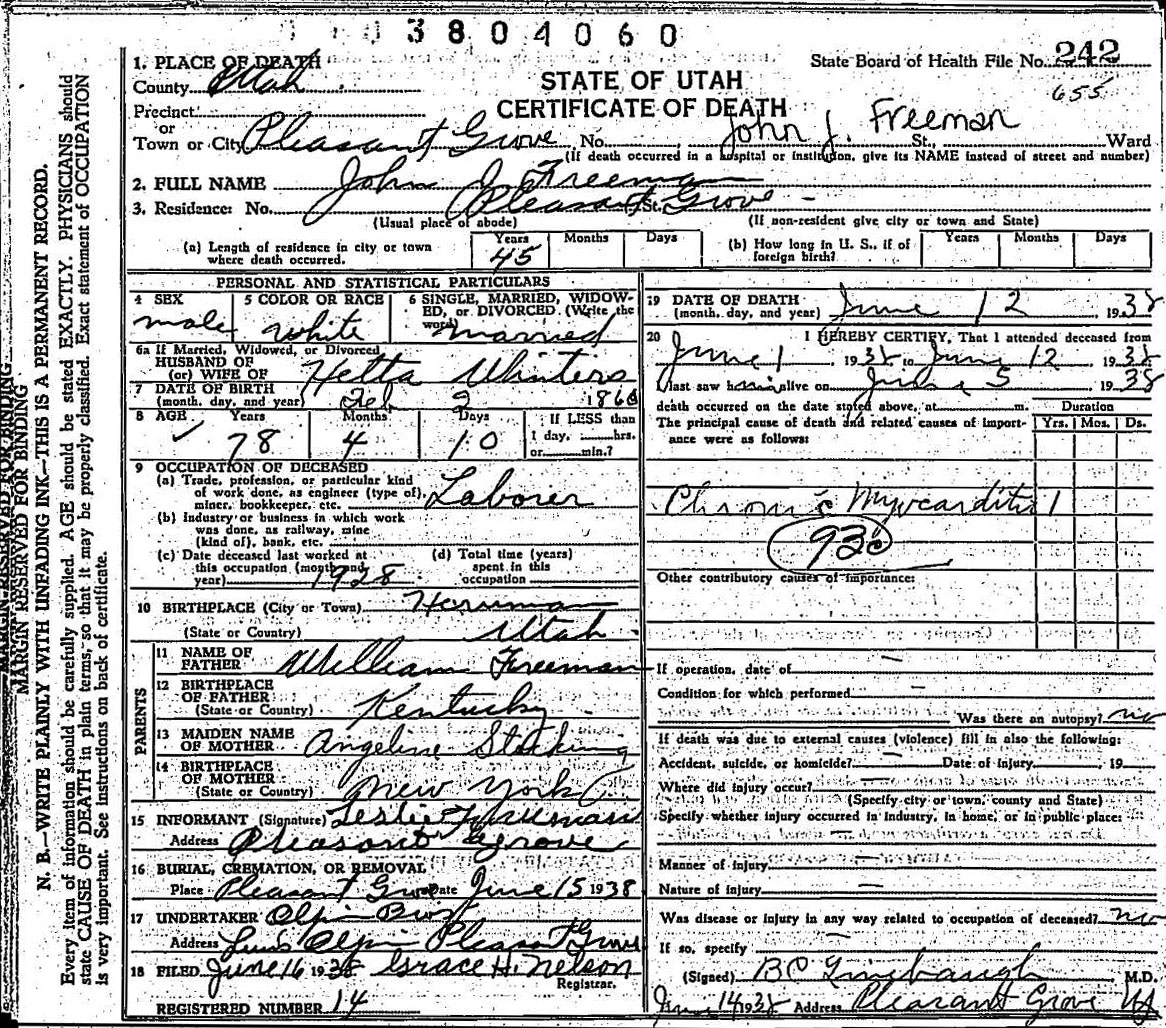 3804060
State Board of Health File No. 242
655
STATE OF UTAH
CERTIFICATE OF DEATH
1. PLACE OF DEATH
County Utah
Precinct
or
Town or City Pleasant Grove No. St., Ward
John J. Freeman
(If death occurred in a hospital or institution, give its NAME instead of street and number)
2. FULL NAME John J Freeman
3. Residence: No. Pleasant St. Grove
(Usual place of abode) (If non-resident give city or town and State)
(a) Length of residence in city or town where death occurred. Years 45 Months Days
(b) How long in U. S., if of foreign birth? Years Months Days
PERSONAL AND STATISTICAL PARTICULARS
4 SEX male
5 COLOR OR RACE White
6 SINGLE, MARRIED, WIDOWED, or DIVORCED (Write the word) married
6a If Married, Widowed, or Divorced
HUSBAND OF
(or) WIFE OF Hetta Winters
7 DATE OF BIRTH
(month, day, and year) Feb 2 1860
8 AGE Years 78 Months 4 Days 10
If LESS than
1 day, hrs.
or min.?
9 OCCUPATION OF DECEASED
(a) Trade, profession, or particular kind
of work done, as engineer (type of),
miner, bookkeeper, etc. Laborer
(b) Industry or business in which work
was done, as railway, mine
(kind of), bank, etc.
(c) Date deceased last worked at
this occupation (month and
year) 1928
(d) Total time (years)
spent in this
occupation
10 BIRTHPLACE (City or Town) Herriman
(State or Country) Utah
PARENTS
11 NAME OF
FATHER William Freeman
12 BIRTHPLACE
OF FATHER
(State or Country) Kentucky
13 MAIDEN NAME
OF MOTHER Angeline Stocking
14 BIRTHPLACE
OF MOTHER
(State or Country) New York
15 INFORMANT (Signature) Leslie Freeman
Address Pleasant Grove
16 BURIAL, CREMATION, OR REMOVAL
Place Pleasant Grove Date June 15 1938
17 UNDERTAKER Olpin Bros
Address Olpin Pleasant Grove
18 FILED June 16 1938 Grace H. Nelson
Registrar.
REGISTERED NUMBER 14
19 DATE OF DEATH
(month, day, and year) June 12, 1938
20 I HEREBY CERTIFY, That I attended deceased from
June 1 1938 to June 12, 1938
I last saw him alive on June 5 1938
death occurred on the date stated above, at m. Duration
The principal cause of death and related causes of importance were as follows: Yrs. Mos. Ds.
Chronic Myocarditis 1
93c
Other contributory causes of importance:
If operation, date of
Condition for which performed
Was there an autopsy? no
If death was due to external causes (violence) fill in also the following:
Accident, suicide, or homicide? Date of injury 19
Where did injury occur?
(Specify city or town, county and State)
Specify whether injury occurred in industry, in home, or in public place:
Manner of injury
Nature of injury
Was disease or injury in any way related to occupation of deceased? no
If so, specify
(Signed) BC Linebaugh M.D.
June 14 1938 Address Pleasant Grove Ut
MARGIN RESERVED FOR BINDING
MARGIN RESERVED FOR BINDING
N. B.—WRITE PLAINLY WITH UNFADING INK—THIS IS A PERMANENT RECORD.
Every item of information should be carefully supplied. AGE should be stated EXACTLY. PHYSICIANS should
state CAUSE OF DEATH in plain terms, so that it may be properly classified. Exact statement of OCCUPATION
is very important. See instructions on back of certificate.